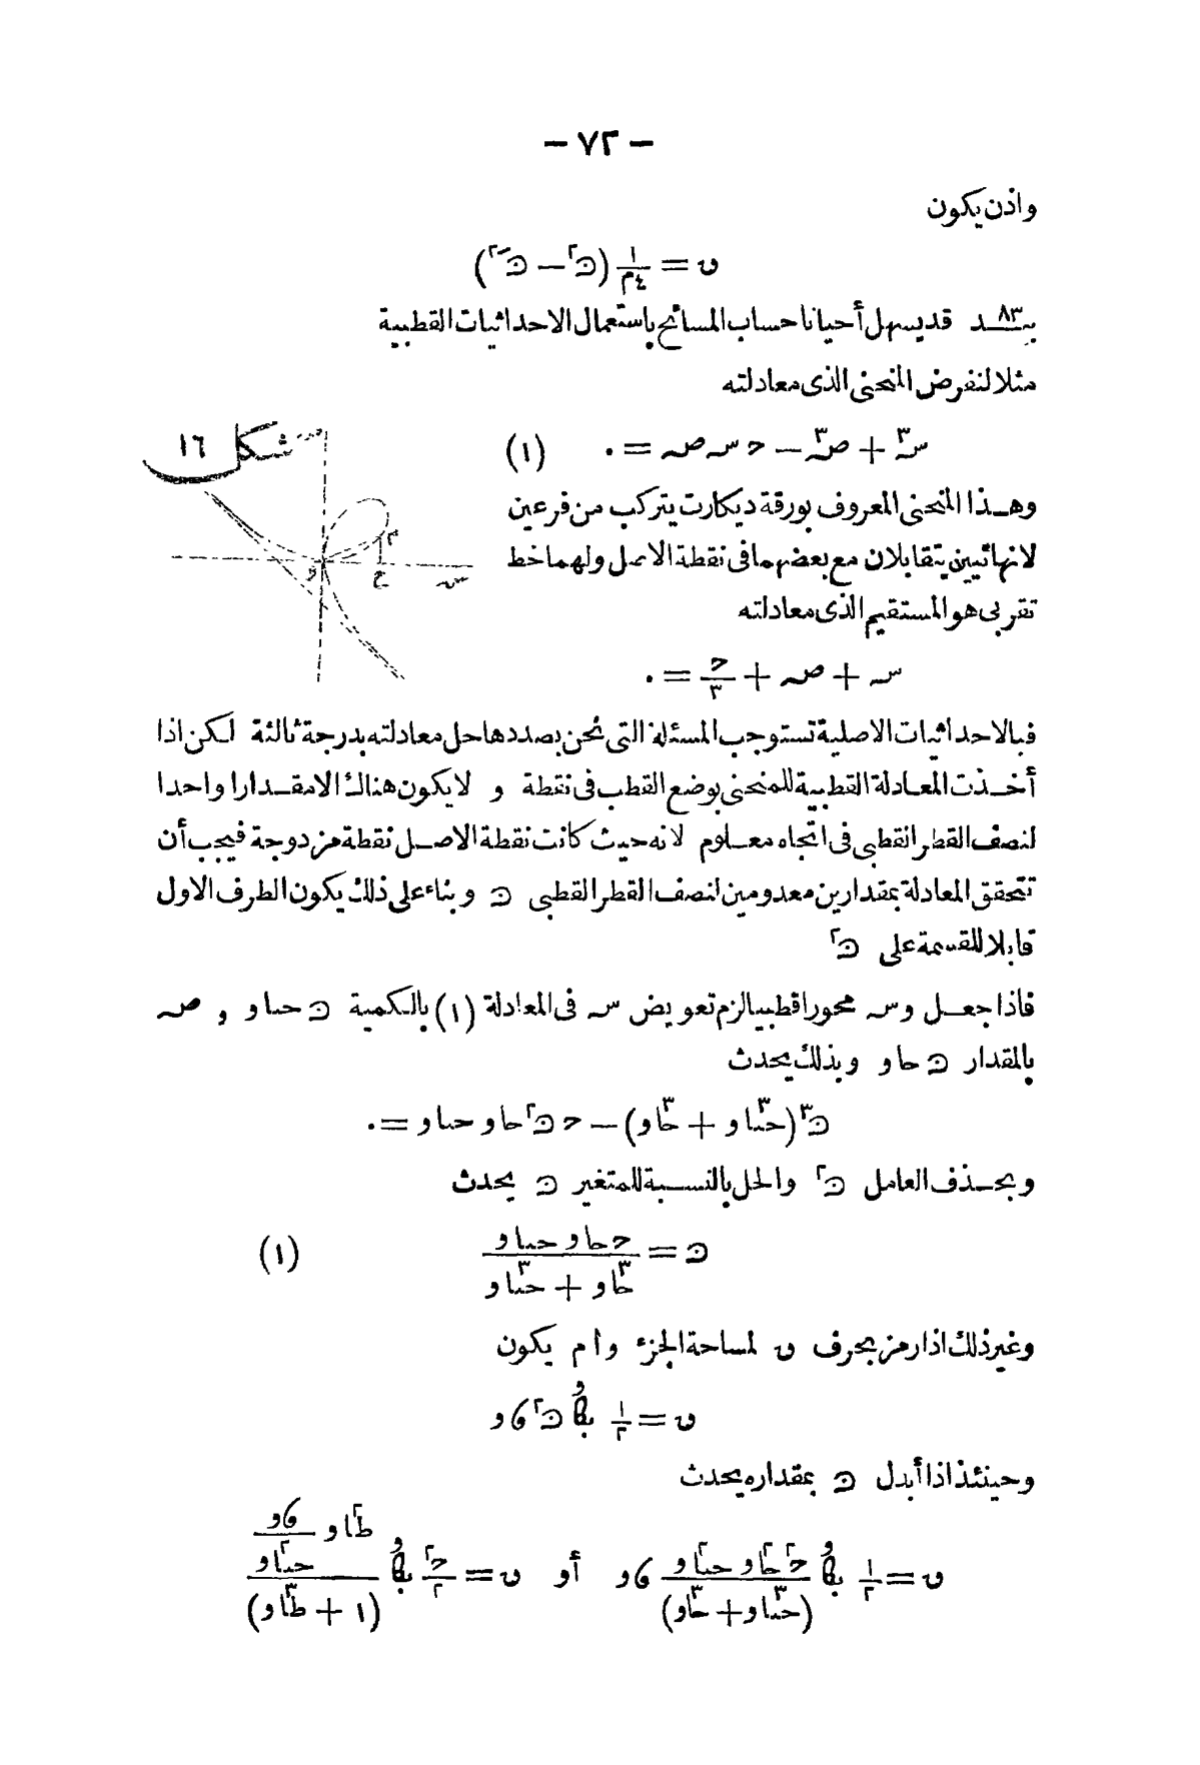 — ٧٢ —
واذن يكون
ں = ١/٤م (ں٢ — ں′٢)
بنـــد ٨٣ قد يسهل أحيانا حساب المسائح باستعمال الاحداثيات القطبية
مثلا لنفرض المنحنى الذى معادلته
شكل ١٦
س٣ + ص٣ — ح س ص = ٠ (١)
وهـذا المنحنى المعروف بورقة ديكارت يتركب من فرعين
لانهائيين يتقابلان مع بعضهما فى نقطة الاصل ولهما خط
تقربى هو المستقيم الذى معادلته
م
و ع س
س + ص + ح/٣ = ٠
فبالاحداثيات الاصلية تستوجب المسئلة التى نحن بصددها حل معادلته بدرجة ثالثة لكن اذا
أخـذت المعـادلة القطبية للمنحنى بوضع القطب فى نقطة و لا يكون هناك الا مقـدارا واحدا
لنصف القطر القطبى فى اتجاه معـلوم لانه حيث كانت نقطة الاصـل نقطة مزدوجة فيجب أن
تتحقق المعادلة بمقدارين معدومين لنصف القطر القطبى ں وبناء على ذلك يكون الطرف الاول
قابلا للقسمة على ں٢
فاذا جعـل وس محورا قطبيا لزم تعويض س فى المعادلة (١) بالكمية ں حتا و , ص
بالمقدار ں حا و وبذلك يحدث
ں٣ (حتا٣ و + حا٣ و) — ح ں٢ حا و حتا و = ٠
وبحـذف العامل ں٢ والحل بالنسـبة للمتغير ں يحدث
ں = ح حا و حتا و / حا٣ و + حتا٣ و (١)
وغير ذلك اذا رمز بحرف ں لمساحة الجزء و ا م يكون
ں = ١/٢ و ں٢ ء و
وحينئذ اذا أبدل ں بمقداره يحدث
ں = ١/٢ و ح٢ حا٢ و حتا٢ و / (حتا٣ و + حا٣ و) ء و أو ں = ح٢/٢ و طا٢ و ء و/حتا٢ و / (١ + طا٣ و)